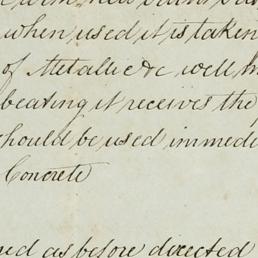 when used it is taken
of Metallic &c well
beating it receives the
should be used immedi
Concrete
ued as before directed